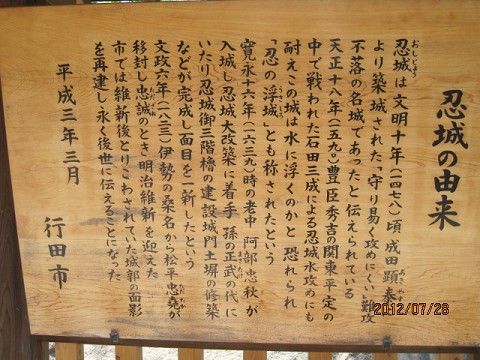 忍城の由来
おしじょう
忍城は文明十年(一四七八)頃成田顕泰
あきやす
より築城された「守り易く攻めにくい」難攻
不落の名城であったと伝えられている
天正十八年(一五九〇)豊臣秀吉の関東平定の
中で戦われた石田三成による忍城水攻めにも
耐えこの城は水に浮くのかと恐れられ
「忍の浮城」とも称されたという
寛永十六年(一六三九)時の老中阿部忠秋が
入城し忍城大改築に着手孫の正武の代に
いたり忍城御三階櫓の建設城門土塀の修築
などが完成し面目を一新したという
文政六年(一八二三)伊勢の桑名から松平忠堯が
移封し忠誠のとき明治維新を迎えた
市では維新後とりこわされていた城郭の面影
を再建し永く後世に伝えることになった
平成三年三月
行田市
2012/07/28